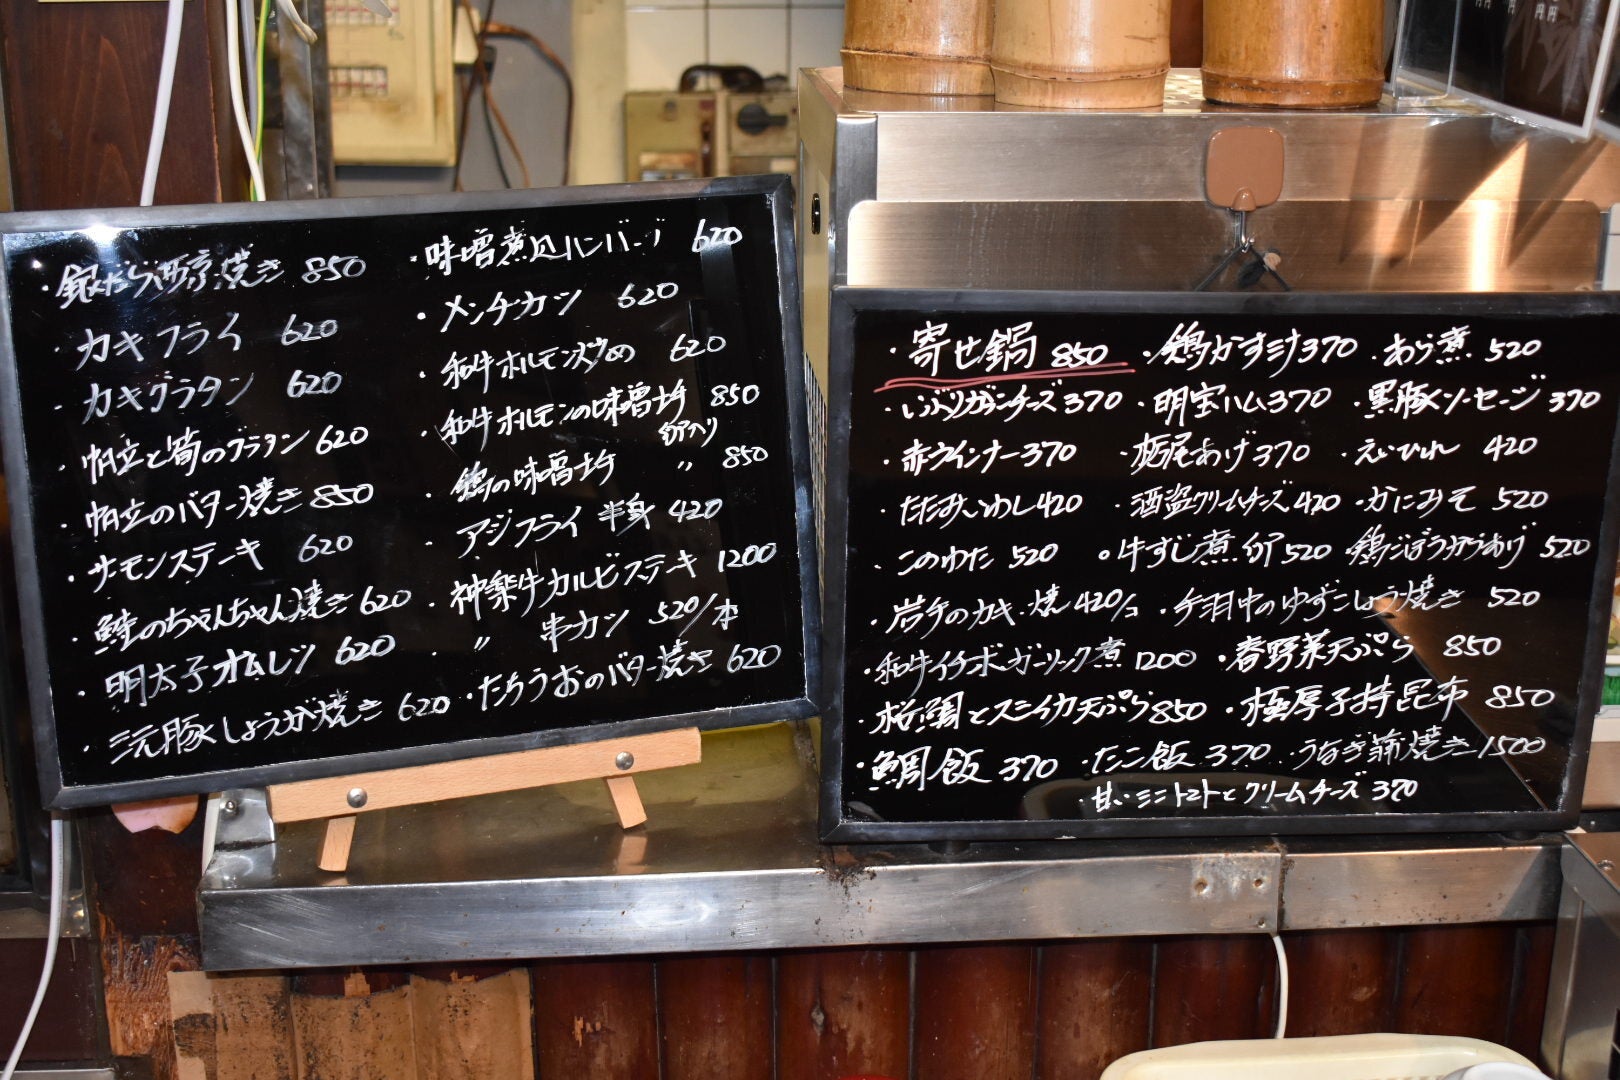 ・銀だら西京焼き 850
・カキフライ 620
・カキグラタン 620
・帆立と筍のグラタン 620
・帆立のバター焼き 850
・サーモンステーキ 620
・鮭のちゃんちゃん焼き 620
・明太子オムレツ 620
・三元豚しょうが焼き 620
・味噌煮込ハンバーグ 620
・メンチカツ 620
・和牛ホルモン炒め 620
・和牛ホルモンの味噌煮 850
卵入り
・鶏の味噌煮 〃 850
・アジフライ 半身 420
・神楽牛カルビステーキ 1200
・〃 串カツ 520/本
・たちうおのバター焼き 620
・寄せ鍋 850 ・鶏かす汁370 ・あら煮 520
・いぶりがっこチーズ370 ・明宝ハム370 ・黒豚ソーセージ 370
・赤ウインナー370 ・栃尾あげ370 ・えいひれ 420
・たたみいわし420 ・酒盗クリームチーズ420 ・かにみそ 520
・このわた 520 ・牛すじ煮 卵520 ・鶏ごぼうみぞうあげ 520
・岩手のカキ・焼420/コ ・手羽中のゆずこしょう焼き 520
・和牛イチボガーリック煮 1200 ・春野菜天ぷら 850
・桜鯛とスミイカ天ぷら850 ・極厚子持昆布 850
・鯛飯 370 ・たこ飯 370 ・うなぎ蒲焼き1500
・甘いミニトマトとクリームチーズ 370